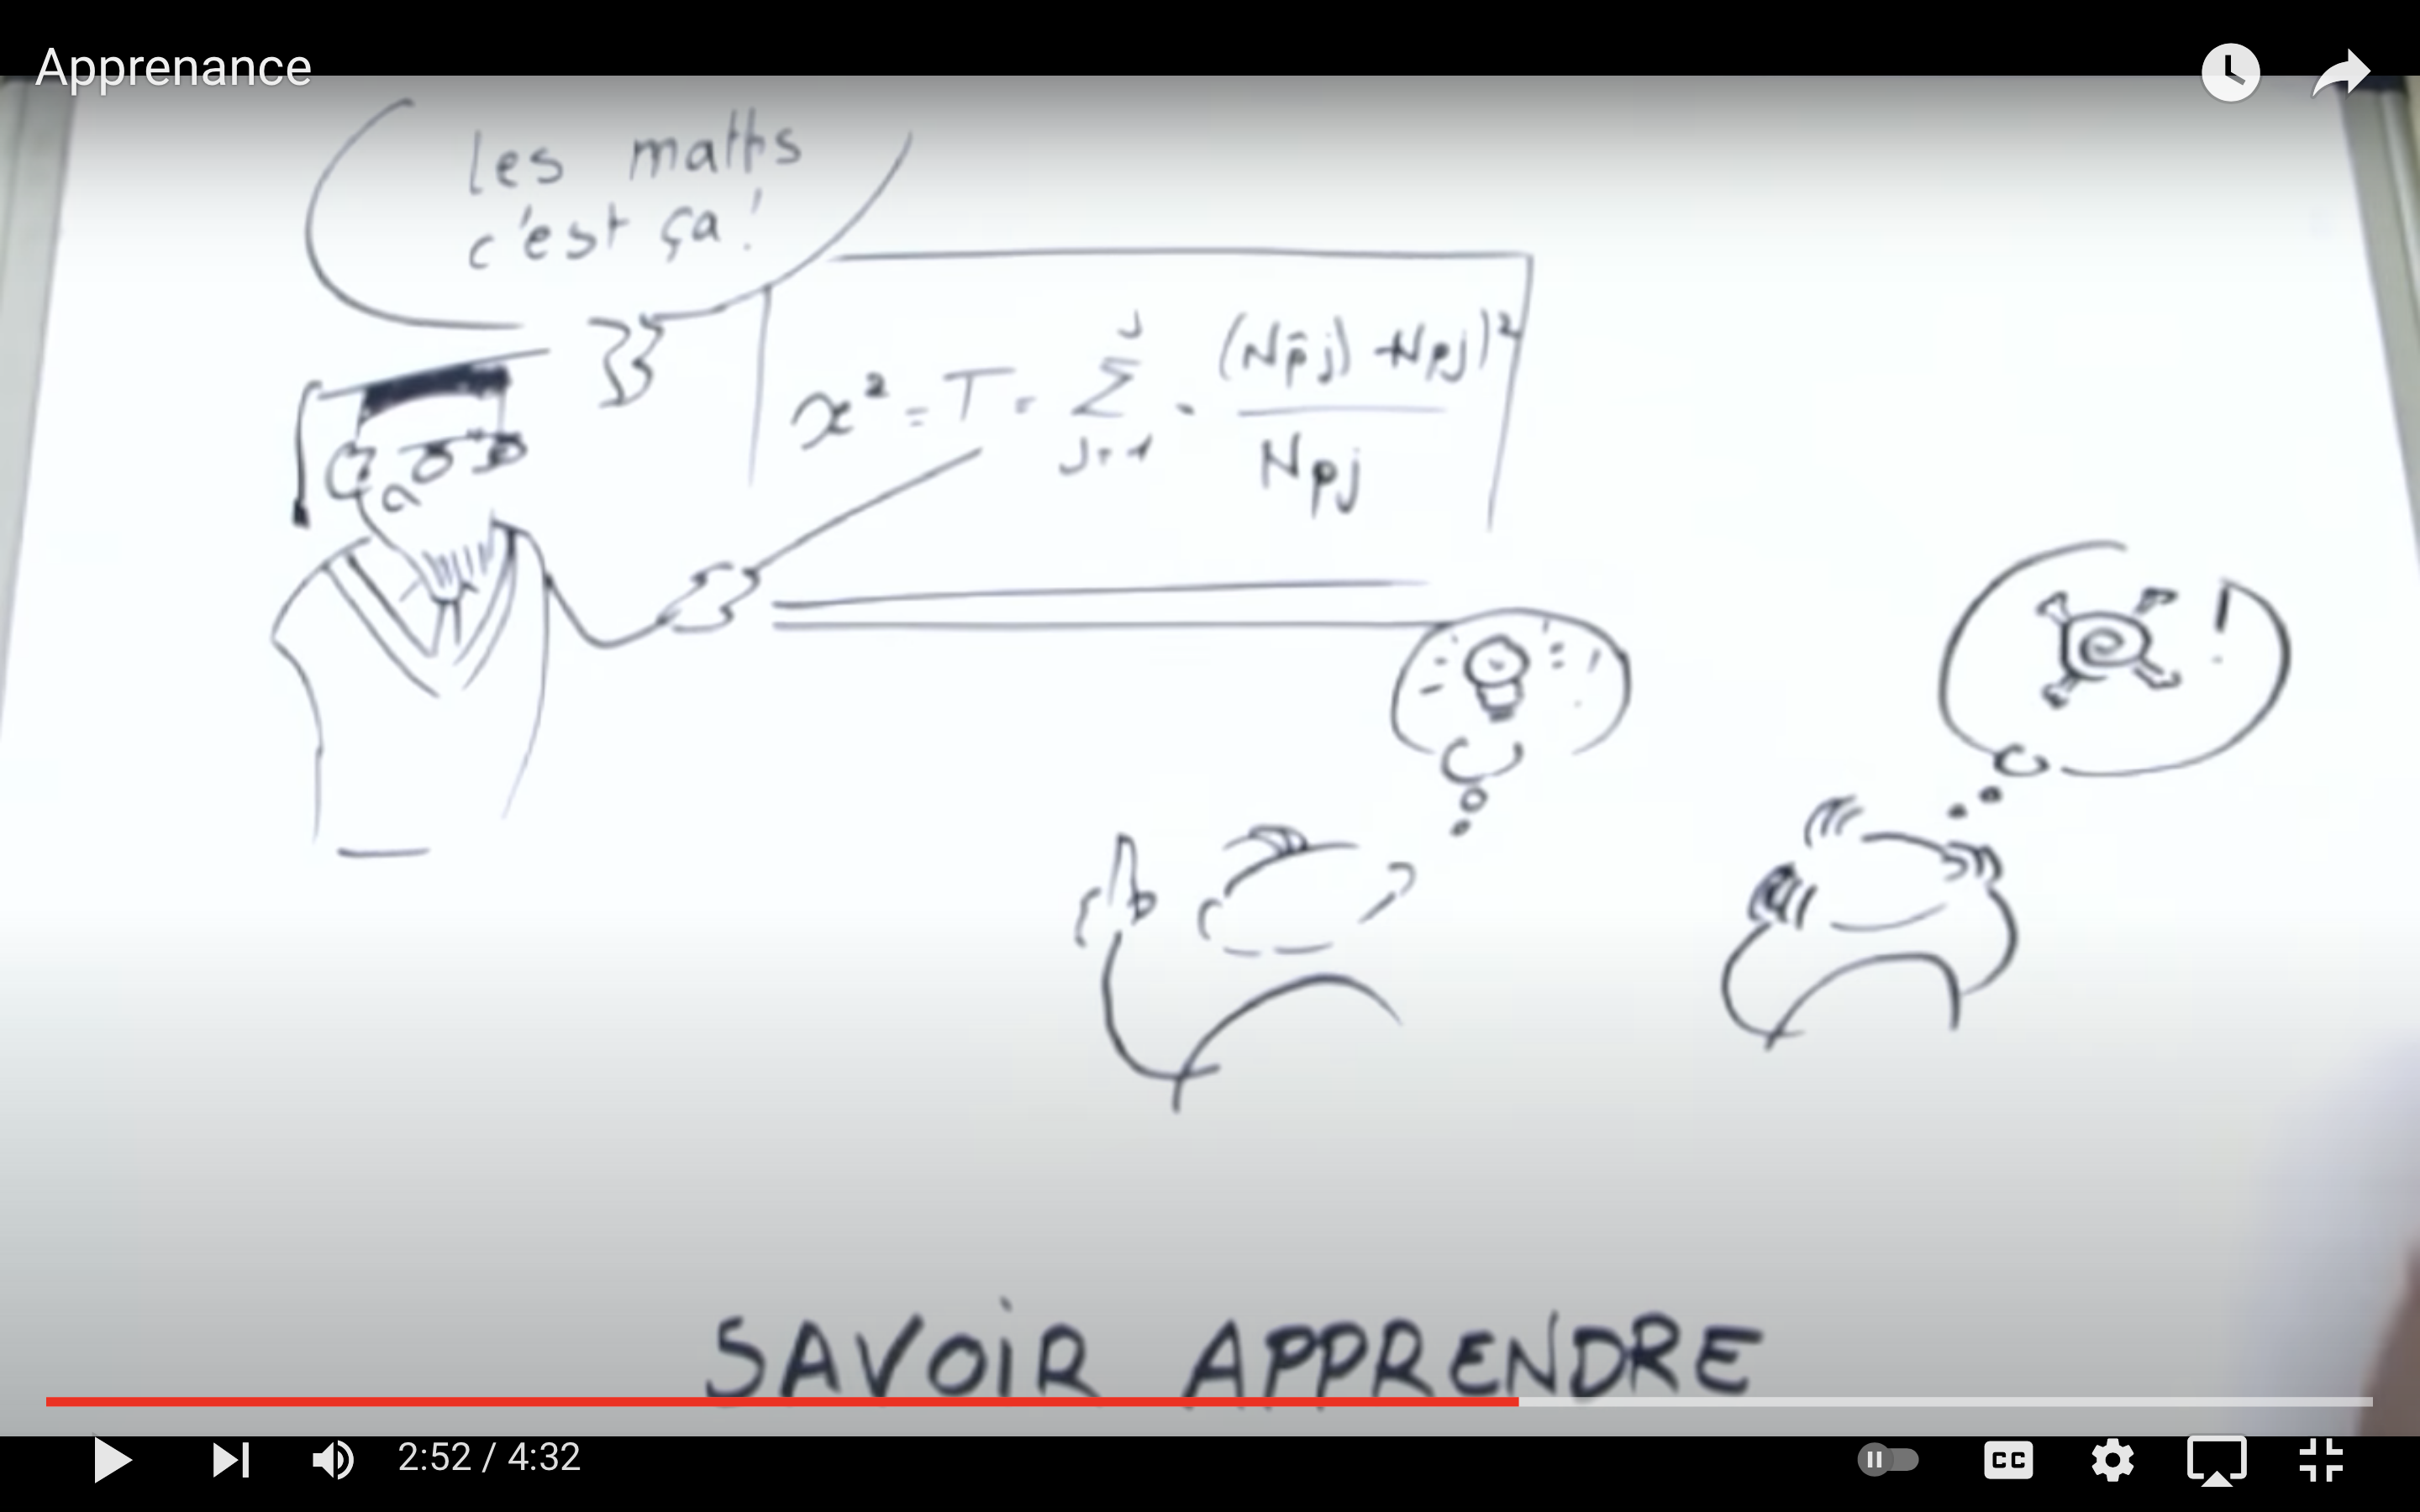 Apprenance
les maths
c'est ça !
x² = T = Σ J J=1 · (Np̂j) - Npj)² / Npj
SAVOiR APPRENDRE
2:52 / 4:32
CC